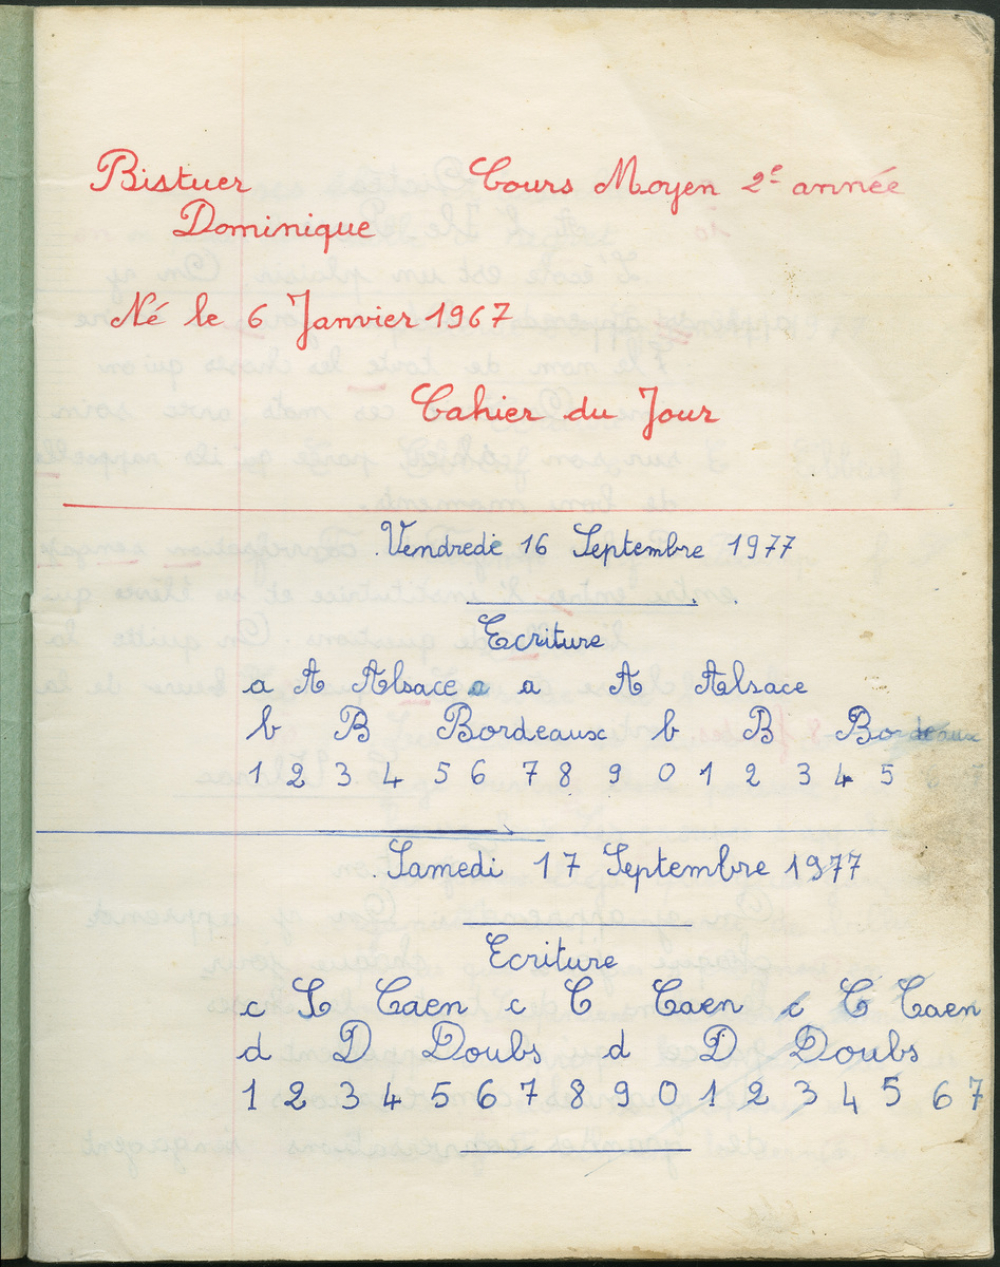 Bistuer Cours Moyen 2e année
Dominique
Né le 6 Janvier 1967
Cahier du Jour
Vendredi 16 Septembre 1977
Ecriture
a A Alsace a a A Alsace
b B Bordeaux b B Bordeaux
1 2 3 4 5 6 7 8 9 0 1 2 3 4 5 6 7
Samedi 17 Septembre 1977
Ecriture
c C Caen c C Caen c C Caen
d D Doubs d D Doubs
1 2 3 4 5 6 7 8 9 0 1 2 3 4 5 6 7